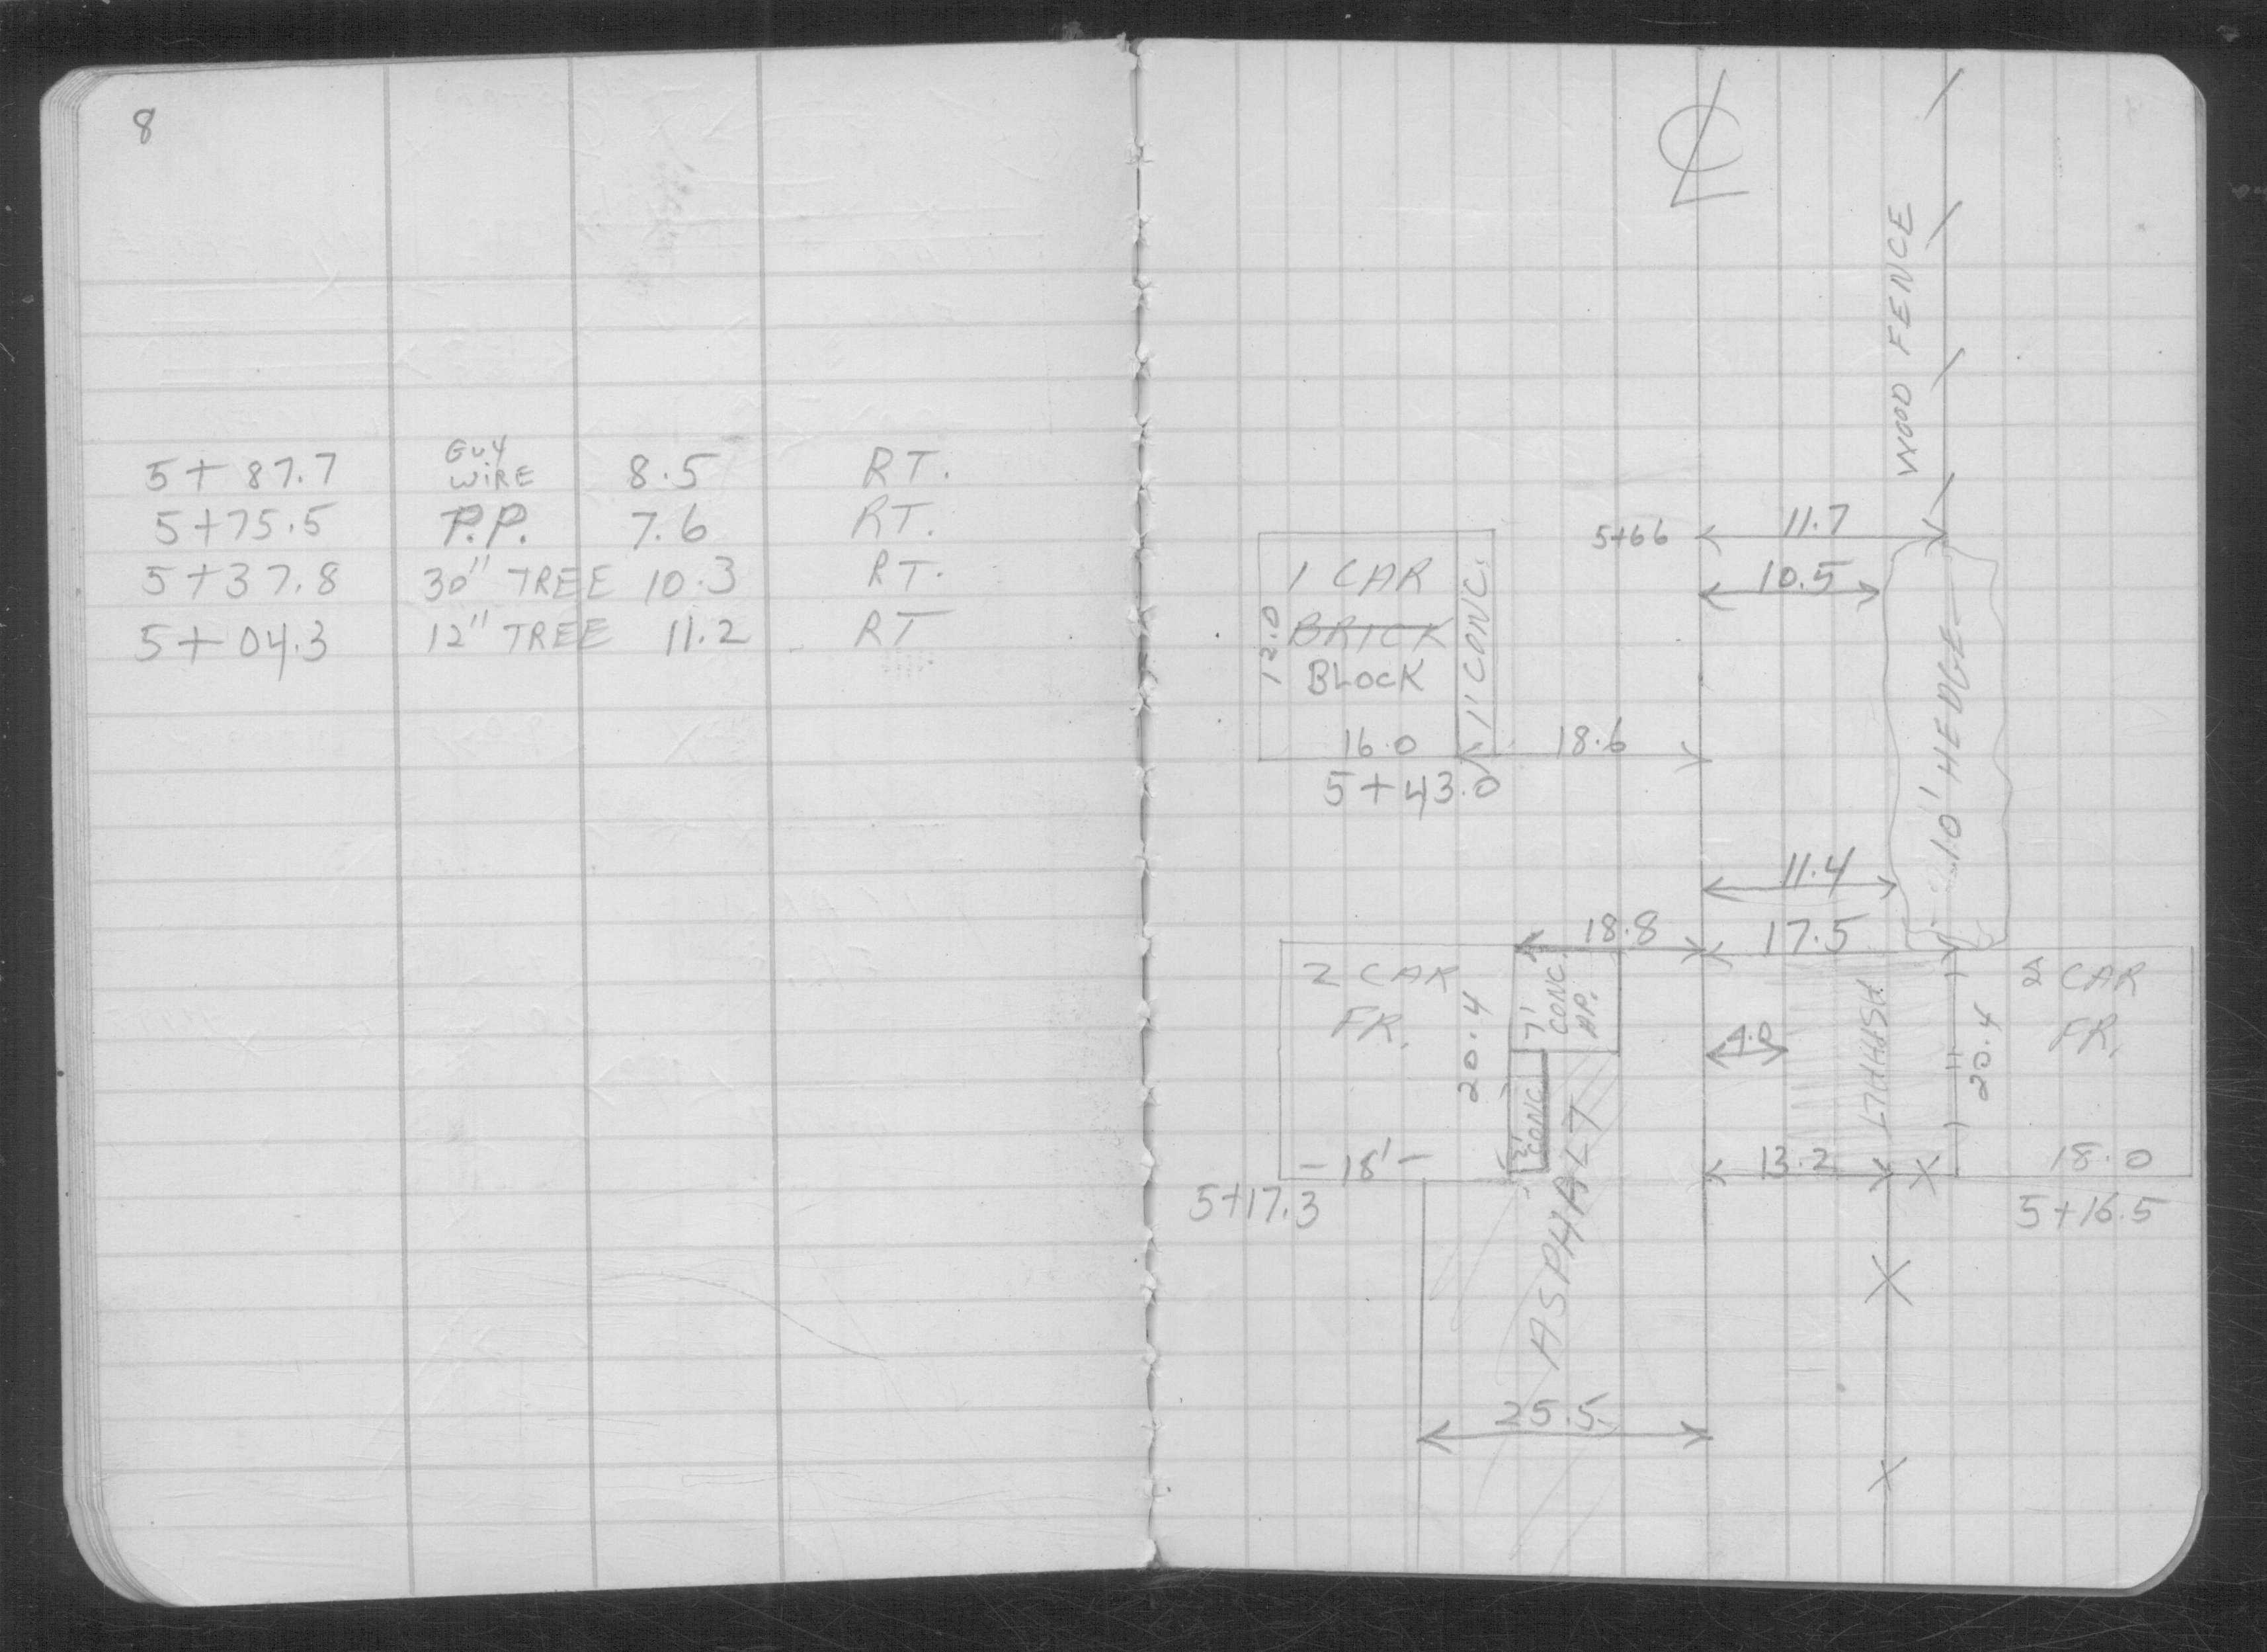 8
5+87.7 GUY WIRE 8.5 RT.
5+75.5 P.P. 7.6 RT.
5+37.8 30" TREE 10.3 RT.
5+04.3 12" TREE 11.2 RT
WOOD FENCE
5+66 11.7
10.5
1 CAR
BRICK
BLOCK
12.0
1' CONC.
16.0
18.6
5+43.0
10' HEDGE
11.4
18.8
17.5
2 CAR
FR.
20.4
7' CONC. AP.
CONC.
-18'-
5+17.3
ASPHALT
4.0
ASPHALT
13.2
2 CAR
FR.
20.4
18.0
5+16.5
25.5